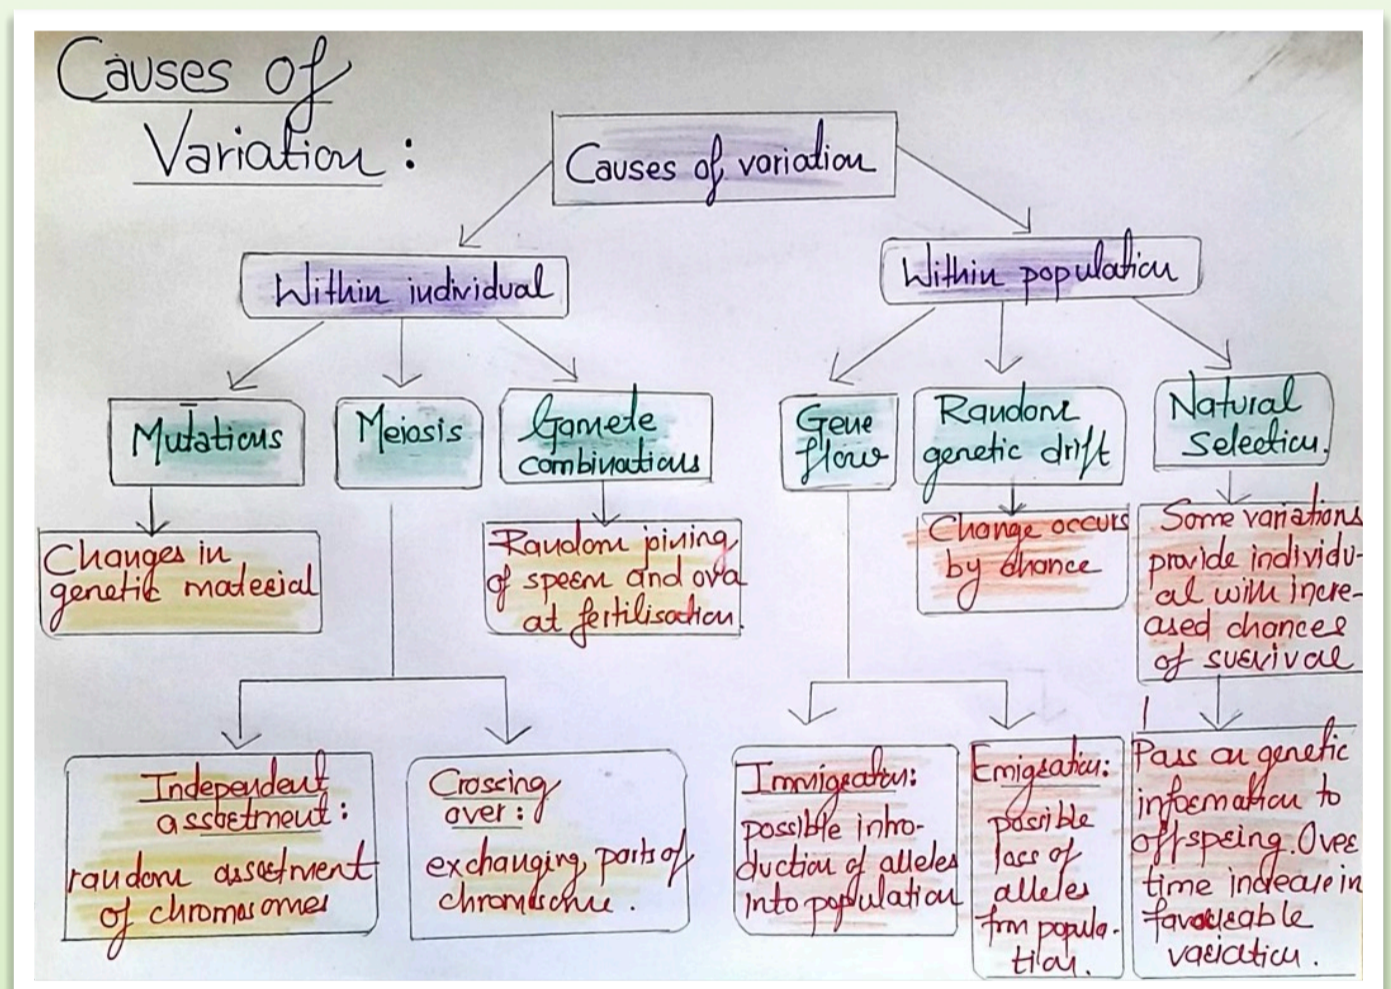 Causes of
Variation :
Causes of variation
Within individual
Within population
Mutations
Meiosis
Gamete
combinations
Gene
flow
Random
genetic drift
Natural
Selection.
Changes in
genetic material
Random joining
of sperm and ova
at fertilisation.
Change occurs
by chance
Some variations
provide individu-
al with incre-
ased chances
of survival
Independent
assortment :
random assortment
of chromosomes
Crossing
over :
exchanging parts of
chromosome.
Immigration:
possible intro-
duction of alleles
into population
Emigration:
possible
loss of
alleles
frm popula-
tion.
Pass on genetic
information to
offspring. Over
time increase in
favourable
variation.